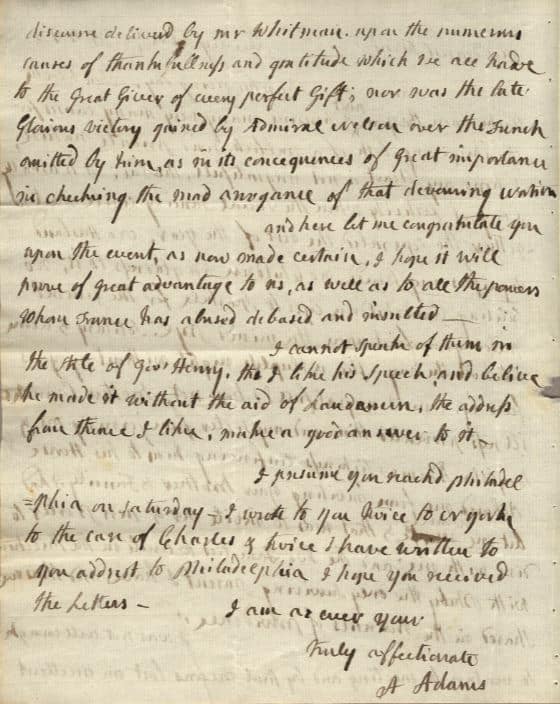 discourse delivered by mr Whitman. upon the numerous
causes of thankfullness and gratitude which we all have
to the Great Giver of every perfect Gift; nor was the late
Glorious victory gained by Admiral Nelson over the French
omitted by him, as in its concequences of Great importance
in checking the mad arrogance of that devouring Nation
and here let me congratulate you
upon the event, as now made certain, I hope it will
prove of great advantage to us, as well as to all the powers
whom France has abused debased and insulted—
I cannot speak of them in
the stile of Govr Henry, tho I like his speech, and believe
he made it without the aid of Laudanum, the address
from thence I like, make a good answer to it—
I presume you reachd philadel
=phia on saturday— I wrote to you twice to N york
to the care of Charles & twice I have written to
you addrest to Philadelphia I hope you received
the Letters—
I am as ever your
truly affectionate
A Adams